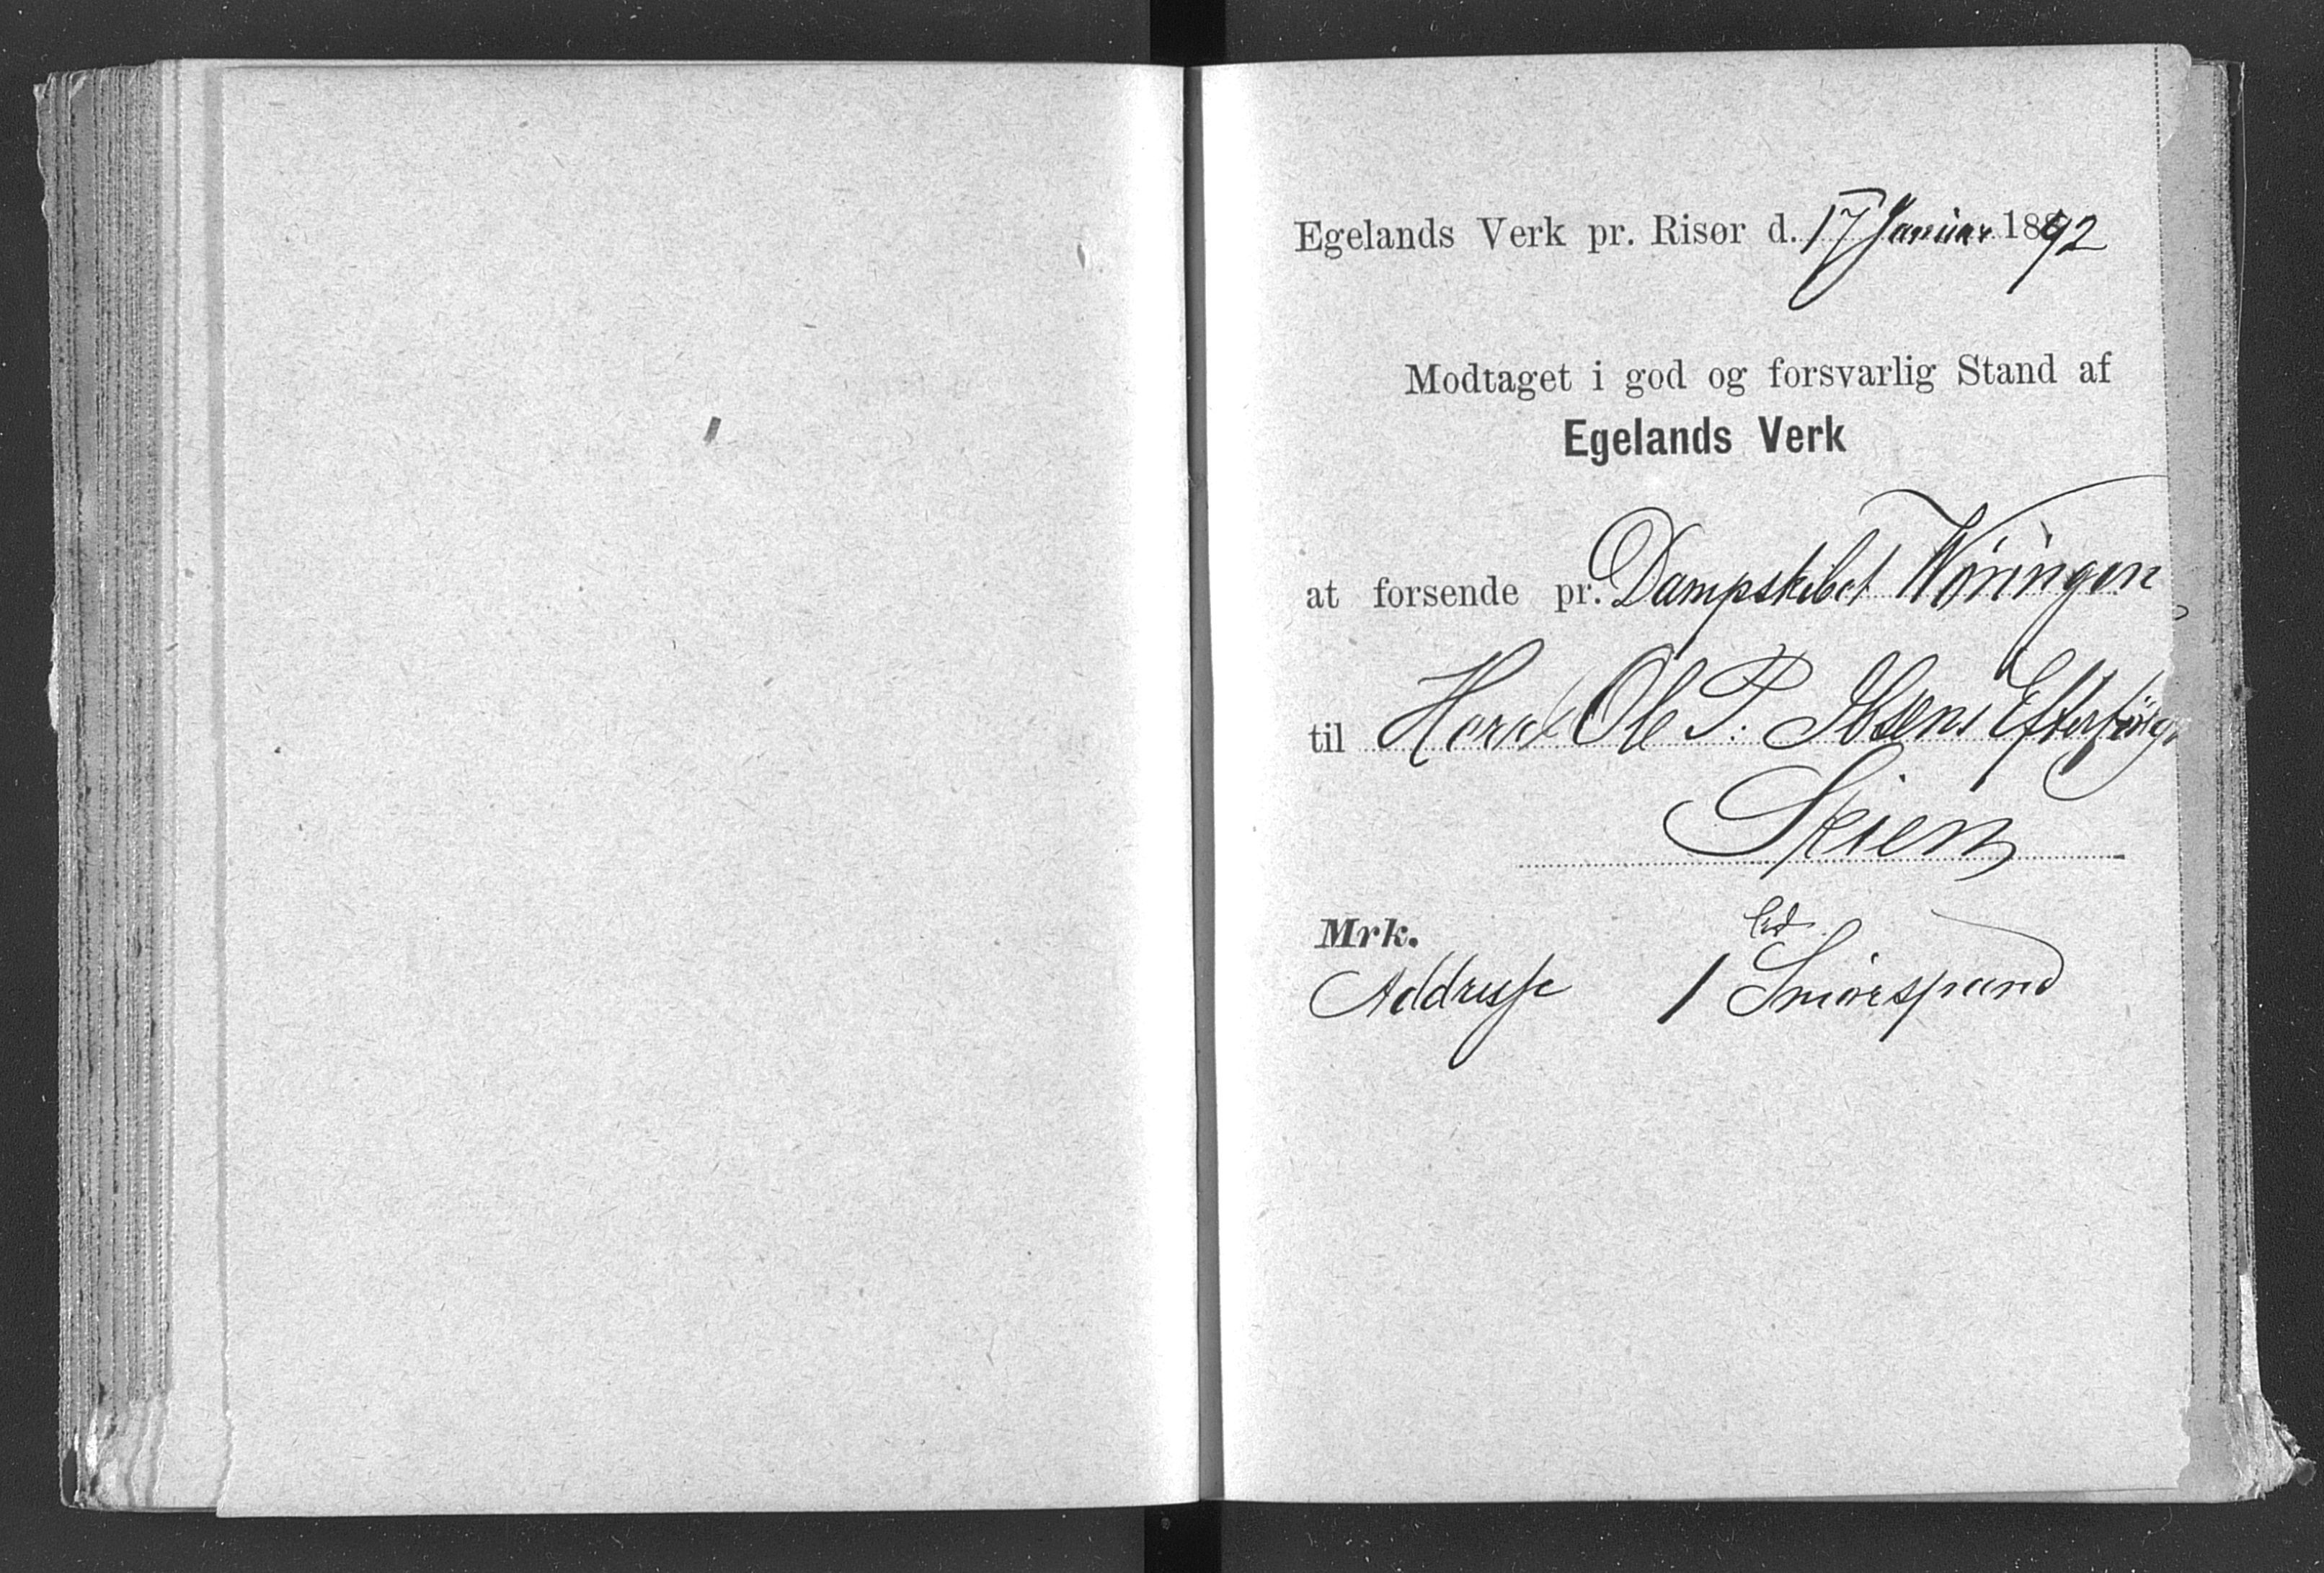 Egelands Verk pr. Risør d. 17 Januar 1892
Modtaget i god og forsvarlig Stand af
Egelands Verk
at forsende pr. Dampskibet Væringen
til Herrer Ole P. Ibsens Efterfølger
Skien
Mrk.
Addresse 1 Smørspand